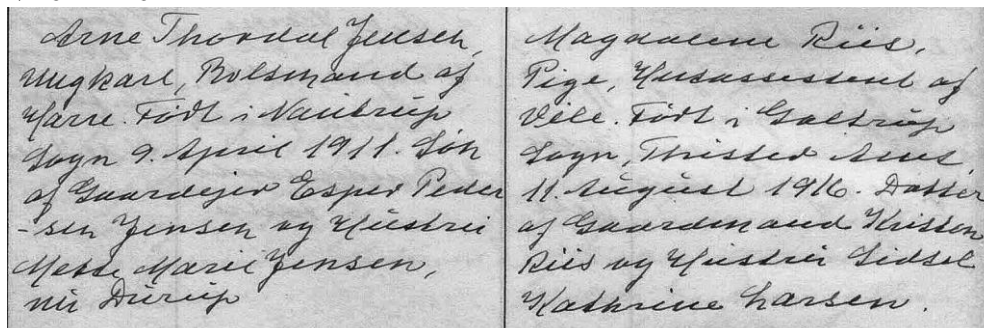 Arne Thordal Jensen,
Ungkarl, Bolsmand af
Harre. Født i Nautrup
Sogn 9. April 1911. Søn
af Gaardejer Esper Peder
-sen Jensen og Hustru
Mette Marie Jensen,
Durup
Magdalene Riis,
Pige, Husassistent af
Vile. Født i Galtrup
Sogn, Thisted Amt
11. August 1916. Datter
af Gaardmand Kristen
Riis og Hustru Sidsel
Kathrine Larsen.